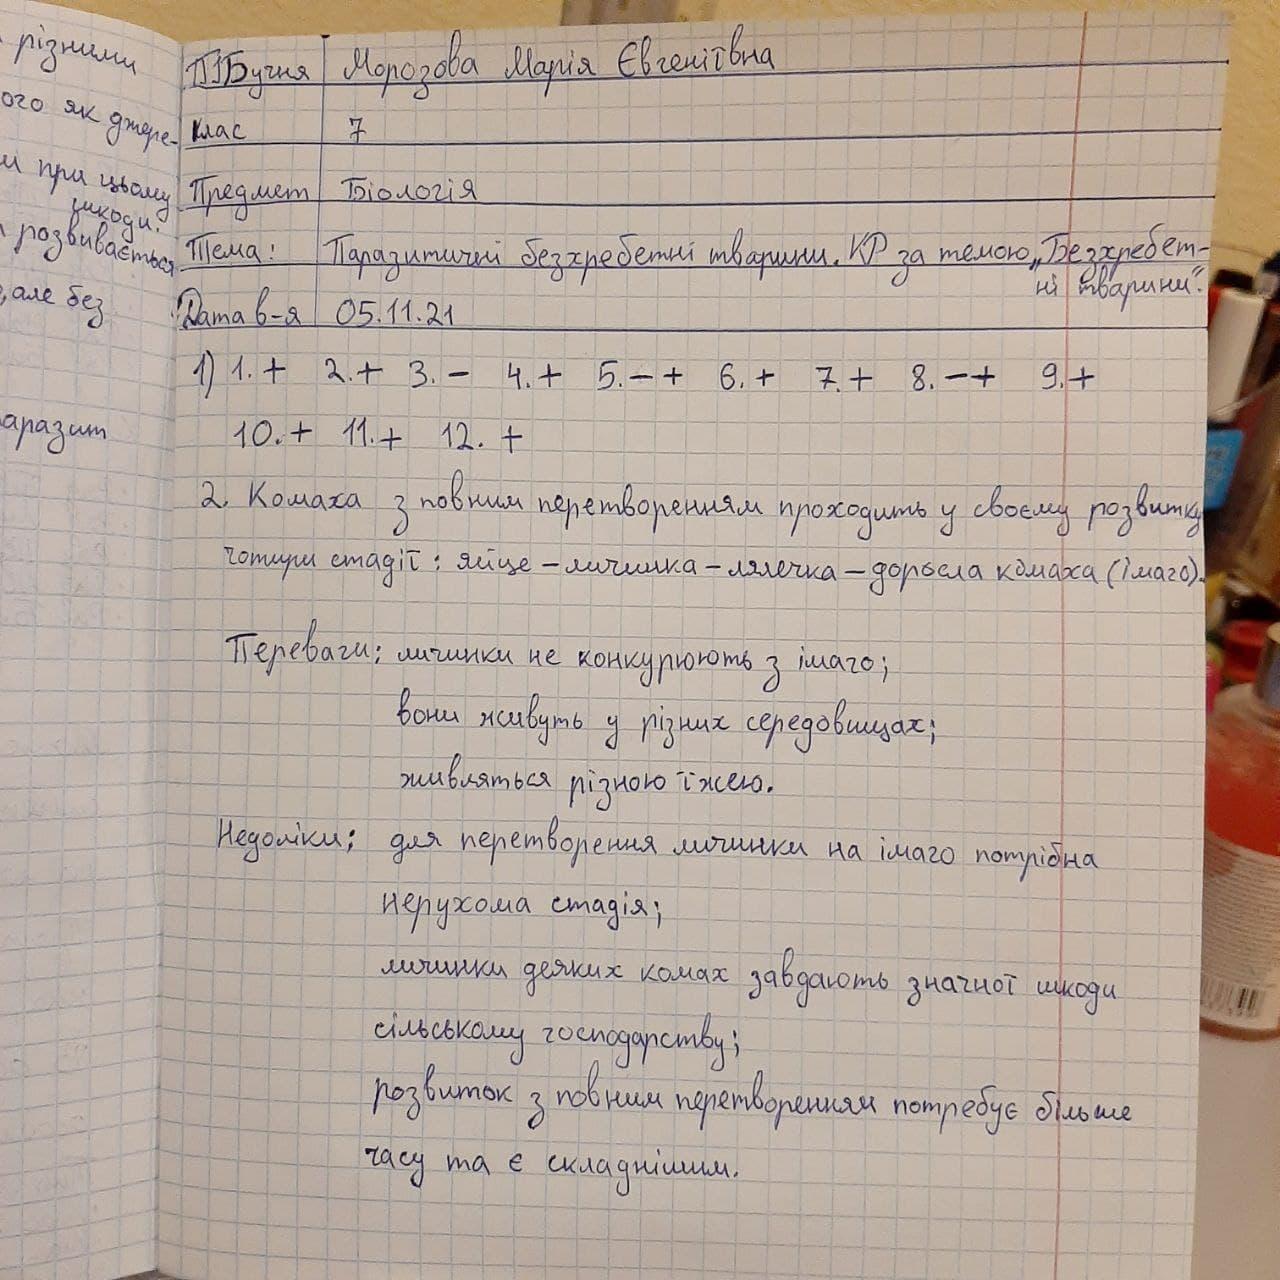 різними
ого як джере-
и при цьому
шкоди.
розвивається
, але без
аразит
ПІБучня Морозова Марія Євгеніївна
клас 7
Предмет Біологія
Тема: Паразитичні безхребетні тварини. КР за темою „Безхребет-
ні тварини".
Дата в-я 05.11.21
1) 1. + 2. + 3. - 4. + 5. - + 6. + 7. + 8. - + 9. +
10. + 11. + 12. +
2. Комаха з повним перетворенням проходить у своєму розвитку
чотири стадії: яйце – личинка – лялечка – доросла комаха (імаго).
Переваги: личинки не конкурюють з імаго;
вони живуть у різних середовищах;
живляться різною їжею.
Недоліки: для перетворення личинки на імаго потрібна
нерухома стадія;
личинки деяких комах завдають значної шкоди
сільському господарству;
розвиток з повним перетворенням потребує більше
часу та є складнішим.